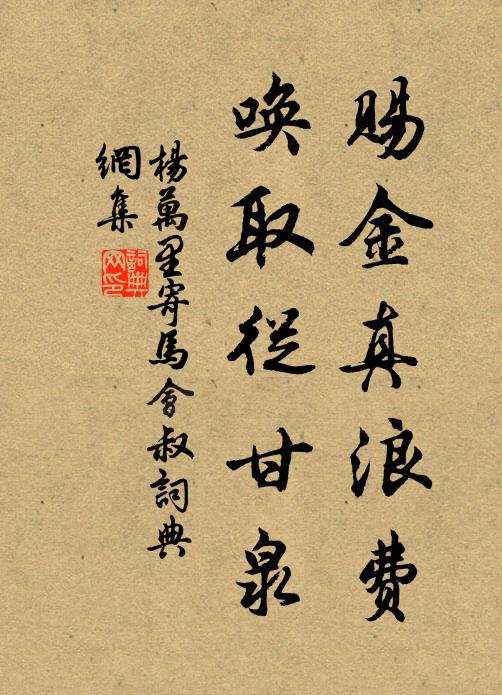 賜金真浪費
喚取從甘泉
楊萬里寄馬會叔詞典
網集
詞典
网印